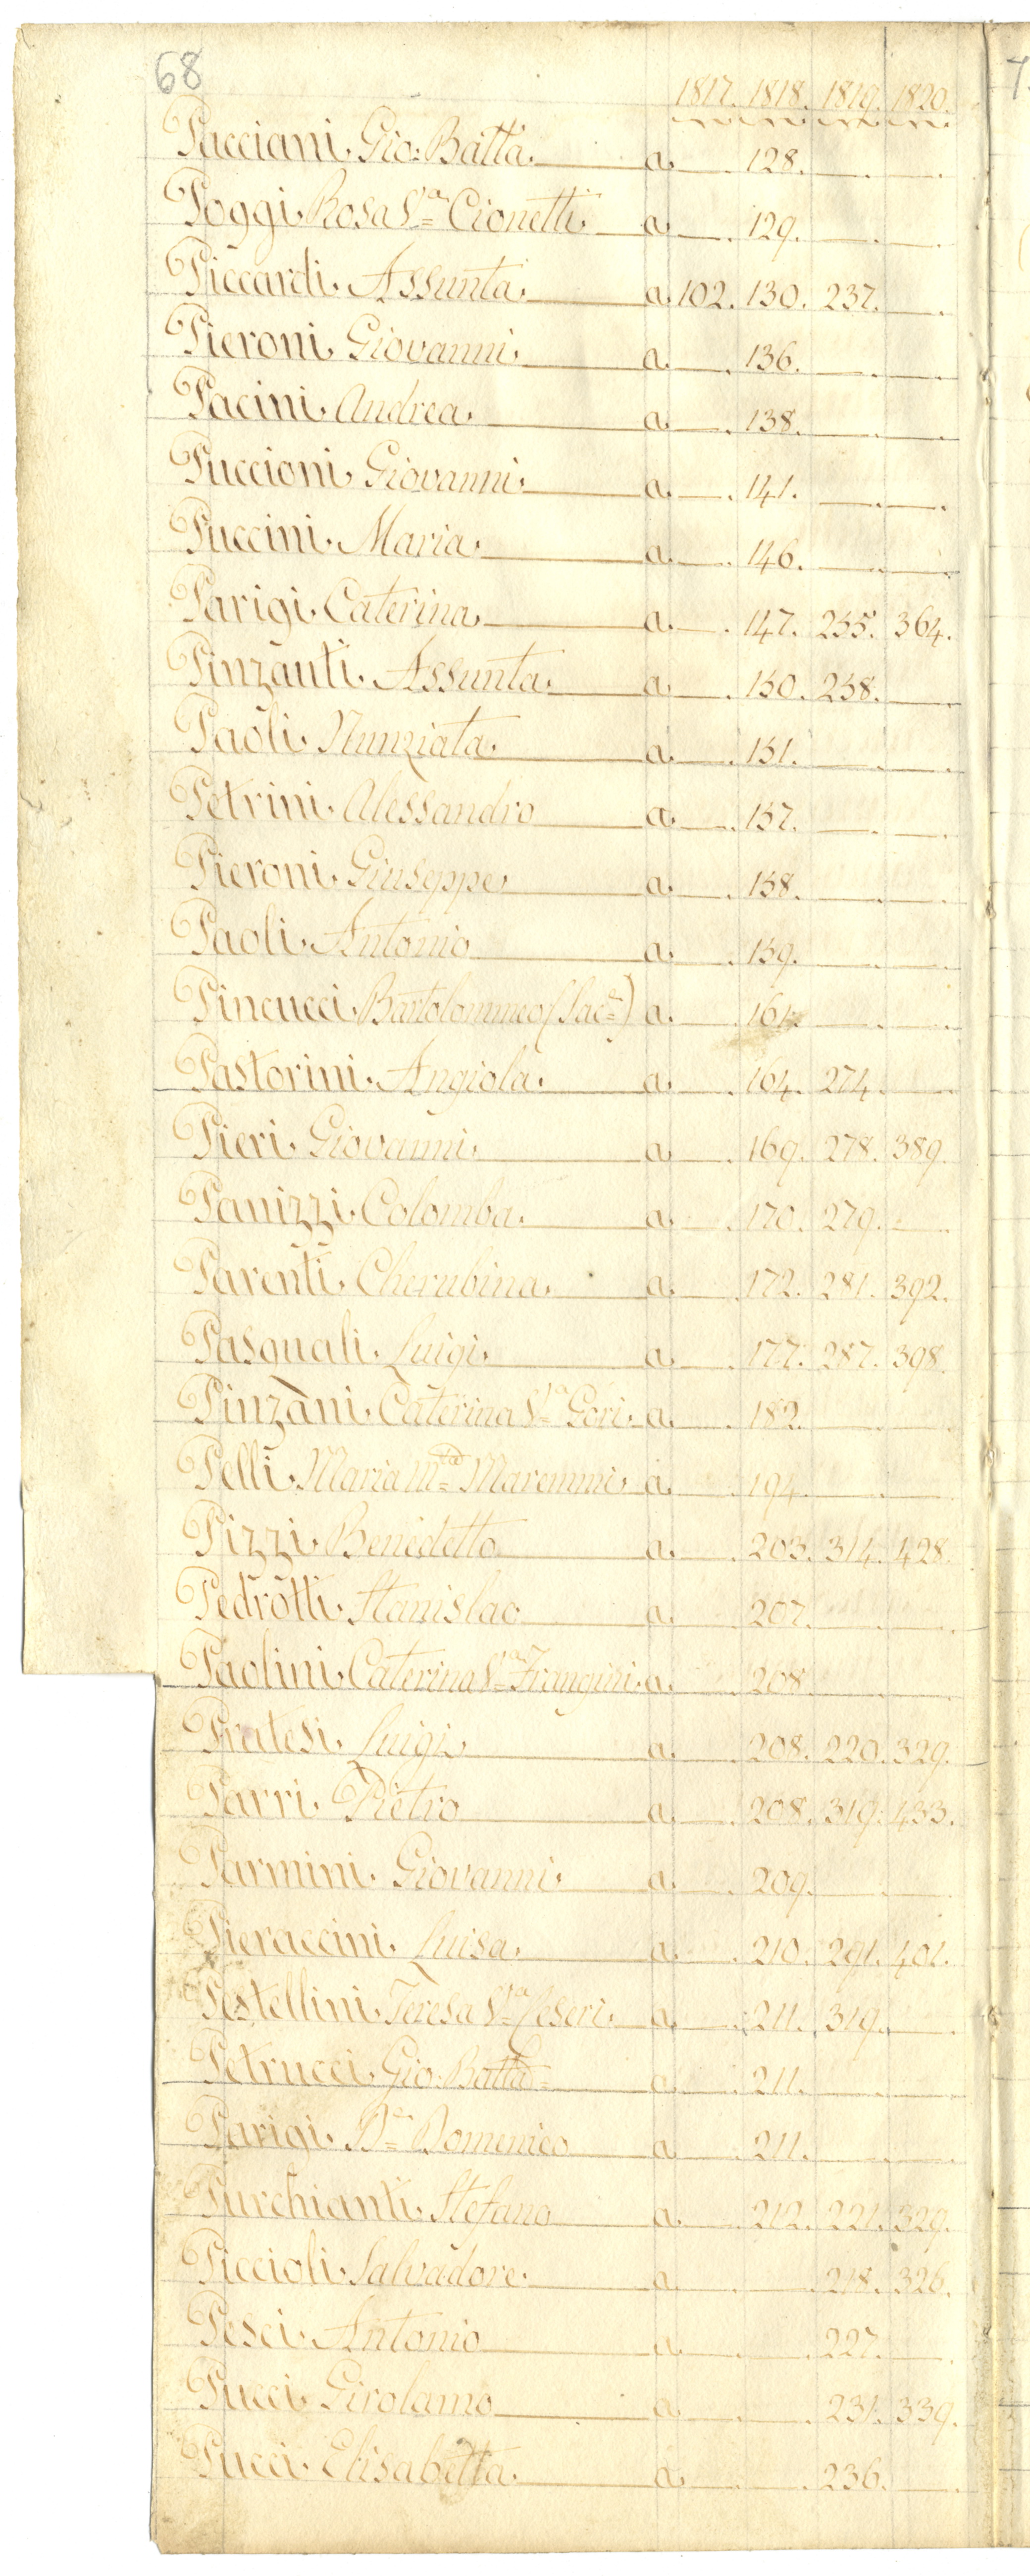 68
1817. 1818. 1819. 1820.
Pacciani. Gio: Batta. a. 128.
Poggi. Rosa Va= Cionetti a. 129.
Piccardi. Assunta. a. 102. 130. 237.
Pieroni. Giovanni. a. 136.
Pacini. Andrea. a. 138.
Puccioni. Giovanni. a. 141.
Puccini. Maria. a. 146.
Parigi. Caterina. a. 147. 255. 364.
Pinzauti. Assunta. a. 150. 258.
Paoli. Nunziata. a. 151.
Petrini. Alessandro a. 157.
Pieroni. Giuseppe. a. 158.
Paoli. Antonio a. 159.
Pincucci. Bartolommeo (Sace=) a. 161.
Pastorini. Angiola. a. 164. 274.
Pieri. Giovanni. a. 169. 278. 389.
Panizzi. Colomba. a. 170. 279.
Parenti. Cherubina. a. 172. 281. 392.
Pasquali. Luigi. a. 177. 287. 398.
Pinzani. Caterina Va= Gori. a. 182.
Pelli. Maria Mta= Maremmi. a. 194.
Pizzi. Benedetto a. 203. 314. 428.
Pedrotti. Stanislao a. 207.
Paolini. Caterina Va= a. 208.
Pratesi. Luigi. a. 208. 220. 329.
Parri. Pietro a. 208. 319. 433.
Parmini. Giovanni. a. 209.
Pieraccini. Luisa. a. 210. 291. 401.
Pestellini. Teresa Va= Ceseri. a. 211. 319.
Petrucci. Gio: Batta= a. 211.
Parigi. Domenico a. 211.
Purchianti. Stefano a. 212. 221. 329.
Piccioli. Salvadore. a. 218. 326.
Pesci. Antonio a. 227.
Pucci. Girolamo a. 231. 339.
Pucci. Elisabetta. a. 236.